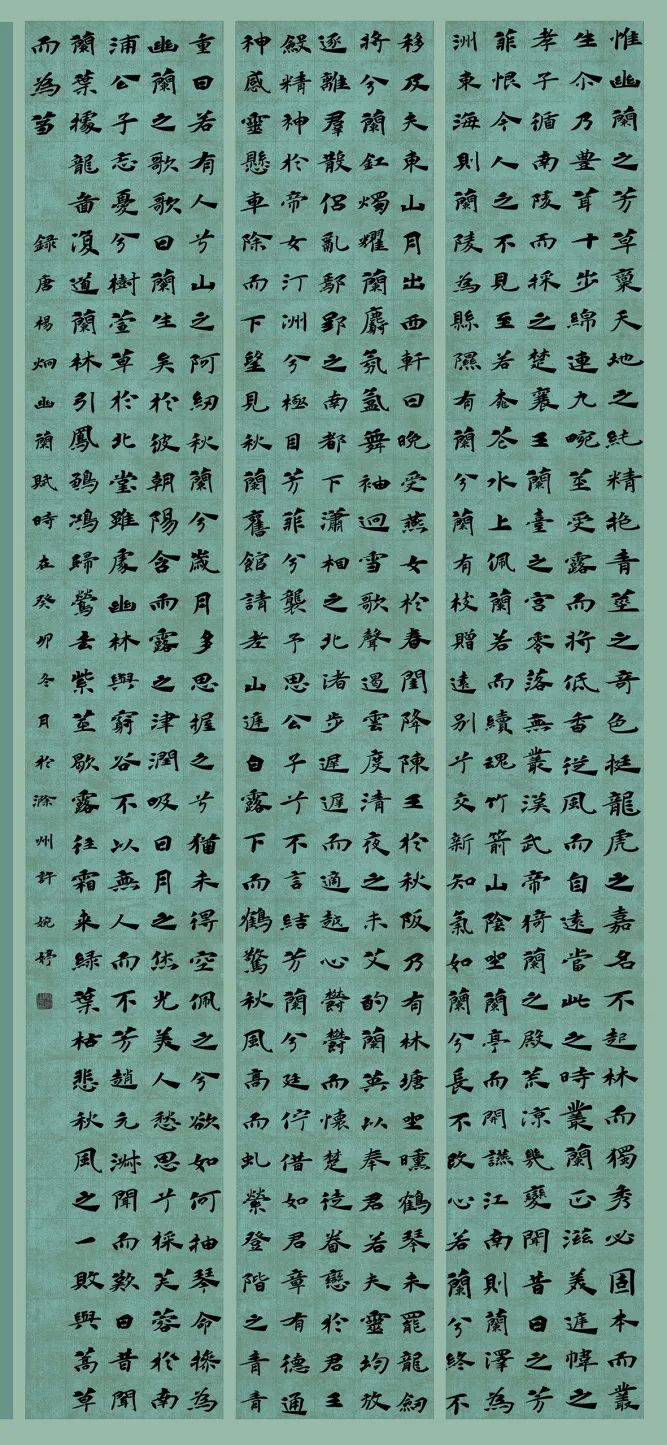 惟幽蘭之芳草稟天地之純精抱青莖之奇色挺龍虎之嘉名不起林而獨秀必固本而叢
生尒乃豊茸十步綿連九畹莖受露而將低香從風而自遠當此之時叢蘭正滋美遅幃之
孝子循南陵而採之楚襄王蘭臺之宮零落無叢漢武帝猗蘭之殿荒涼幾變聞昔日之芳
菲恨今人之不見至若桃花水上佩蘭若而續魂竹箭山陰坐蘭亭而開讌江南則蘭澤為
洲東海則蘭陵為縣隰有蘭兮蘭有枝贈遠別兮交新知氣如蘭兮長不改心若蘭兮終不
移及夫東山月出西軒日晚受燕女於春閨降陳王於秋阪乃有林塘坐曛鶴琴未罷龍劒
將兮蘭釭燭耀蘭麝氛氳舞袖迴雪歌聲遏雲度清夜之未艾酌蘭英以奉君若夫靈均放
逐離羣散侶亂鄢郢之南都下瀟相之北渚步遲遲而適越心鬱鬱而懷楚徒眷戀於君王
歛精神於帝女汀洲兮極目芳菲兮襲予思公子兮不言結芳蘭兮延佇借如君章有德通
神感靈懸車除而下望見秋蘭舊館請老山遅白露下而鶴驚秋風高而虬縈登階之青青
重曰若有人兮山之阿紉秋蘭兮歲月多思握之兮猶未得空佩之兮欲如何抽琴命操為
幽蘭之歌歌曰蘭生矣於彼朝陽含雨露之津潤吸日月之休光美人愁思兮採芙蓉於南
浦公子忘憂兮樹萱草於北堂雖處幽林與窮谷不以無人而不芳趙元淑聞而歎曰昔聞
蘭葉據龍圖復道蘭林引鳳雛鴻歸鶯去紫莖歇露往霜來綠葉枯悲秋風之一敗與蒿草
而為芻 錄唐楊炯幽蘭賦時在癸卯冬月於滁州許婉婷